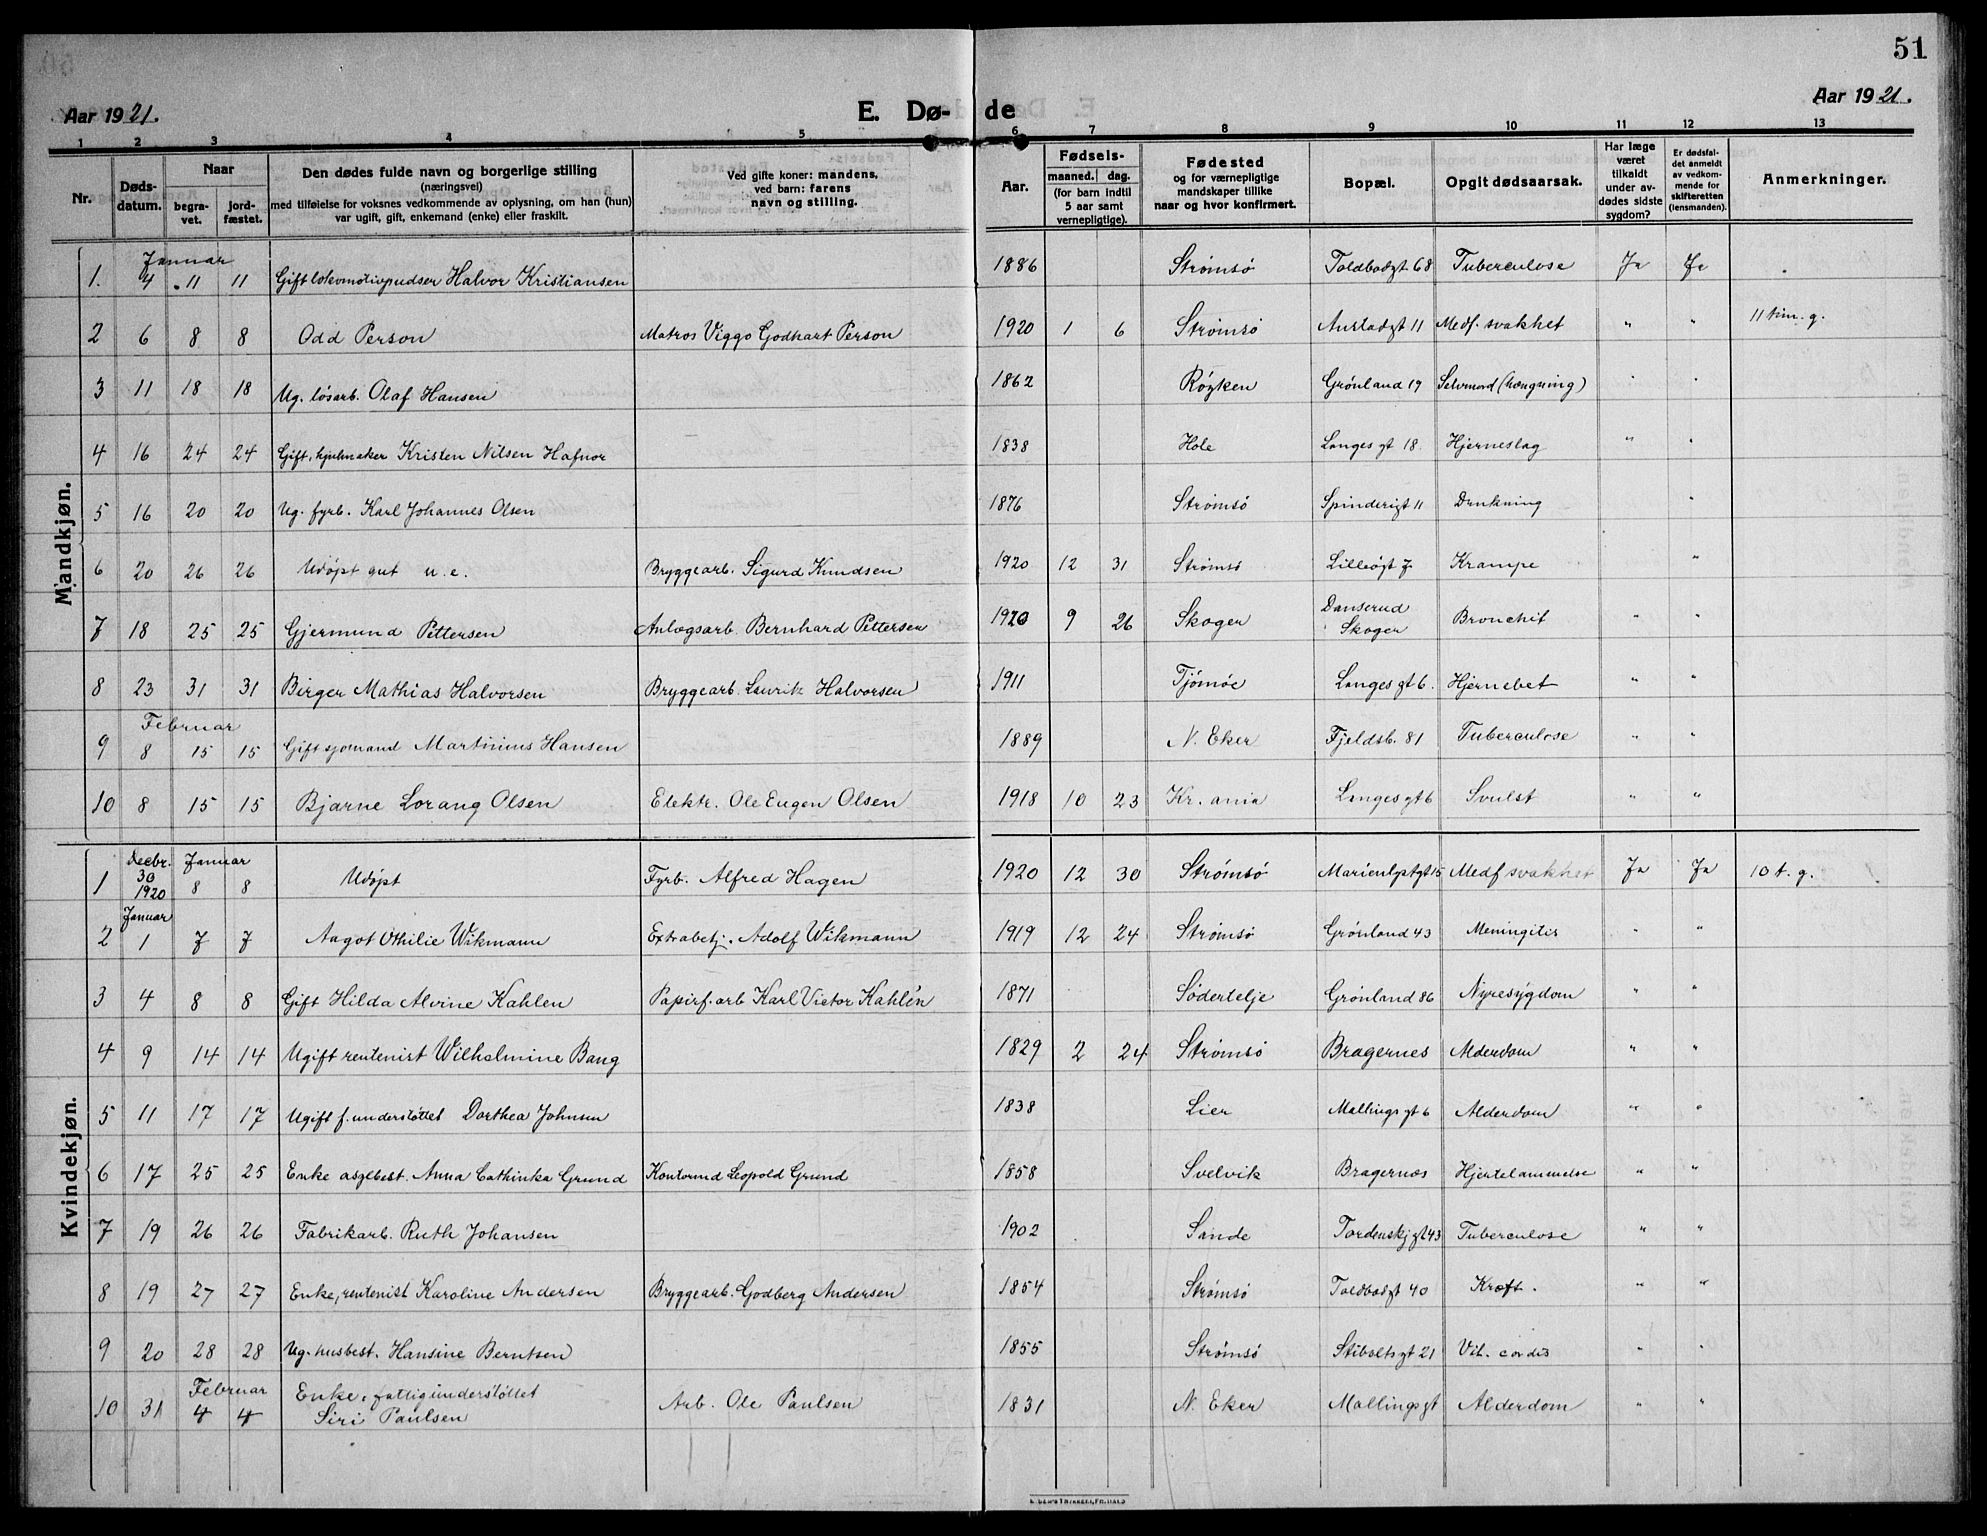 51
Aar 1921. E. Dø- de Aar 1921.
1 2 3 4 5 6 7 8 9 10 11 12 13
Nr. Døds-datum. Naar begra-vet. jord-fæstet. Den dødes fulde navn og borgerlige stilling (næringsvei) med tilføielse for voksnes vedkommende av oplysning, om han (hun) var ugift, gift, enkemand (enke) eller fraskilt. Ved gifte koner: mandens, ved barn: farens navn og stilling. Aar. Fødsels- maaned. dag. (for barn indtil 5 aar samt vernepligtige). Fødested og for værnepligtige mandskaper tillike naar og hvor konfirmert. Bopæl. Opgit dødsaarsak. Har læge været tilkaldt under av-dødes sidste sygdom? Er dødsfal-det anmeldt av vedkom-mende for skifteretten (lensmanden). Anmerkninger.
Mandkjøn.
Januar
1. 4 11 11 Gift lokomotivpudser Halvor Kristiansen 1886 Strømsø Toldbodgt 68 Tuberculose Ja Ja
2 6 8 8 Odd Person Matros Viggo Godhart Person 1920 1 6 Strømsø Austadgt 11 Medf. svakhet " " 11 tim. g.
3 11 18 18 Ug. løsarb. Olaf Hansen 1862 Røyken Grønland 19 Selvmord (hængning)
4 16 24 24 Gift, hjulmaker Kristen Nilsen Hafnor 1838 Hole Langes gt 18. Hjerneslag " "
5 16 20 20 Ug. fyrb. Karl Johannes Olsen 1876 Strømsø Spinderigt 11 Drukning "
6 20 26 26 Udøpt gut u.e. Bryggearb. Sigurd Knudsen 1920 12 31 Strømsø Lilleøgt 7 Krampe "
7 18 25 25 Gjermund Pettersen Anlægsarb. Bernhard Pettersen 1920 9 26 Skoger Danserud Skoger Bronchit " "
8 23 31 31 Birger Mathias Halvorsen Bryggearb. Laurik Halvorsen 1911 Tjømøe Langes gt 6. Hjernebet " "
Februar
9 8 15 15 Gift sjømand Martinius Hansen 1889 N. Eker Fjeldsb. 81 Tuberculose " "
10 8 15 15 Bjarne Lorang Olsen Elektr. Ole Eugen Olsen 1918 10 23 Kr.ania Langes gt 6 Svulst " "
Kvindekjøn.
Decbr. Januar
1 30 1920 8 8 Udøpt Fyrb. Alfred Hagen 1920 12 30 Strømsø Marienlystgt 15 Medf svakhet Ja Ja 10 t. g.
Januar
2 1 7 7 Aagot Othilie Wikmann Extrabetj. Adolf Wikmann 1919 12 24 Strømsø Grønland 43 Meningitis " "
3 4 8 8 Gift Hilda Alvine Kahlen Papirf.arb Karl Victor Kahlén 1871 Södertelje Grønland 86 Nyresygdom " "
4 9 14 14 Ugift rentenist Wilhelmine Bang 1829 2 24 Strømsø Bragernes Alderdom " "
5 11 17 17 Ugift f. understøttet Dorthea Johnsen 1838 Lier Mallings gt 6 Alderdom " "
6 17 25 25 Enke asylbest. Anna Cathinka Grund Kontormd Leopold Grund 1858 Svelvik Bragernæs Hjertelammelse " "
7 19 26 26 Fabrikarb. Ruth Johansen 1902 Sande Tordenskjgt 43 Tuberculose " "
8 19 27 27 Enke, rentenist Karoline Andersen Bryggearb. Godberg Andersen 1854 Strømsø Toldbodgt 40 Kræft. " "
9 20 28 28 Ug. husbest. Hansine Berntsen 1855 Strømsø Stiboltsgt 21 Vit. cordis " "
Februar
10 31 4 4 Enke, fattigunderstøttet Siri Paulsen Arb. Ole Paulsen 1831 N. Eker Mallingsgt Alderdom " "